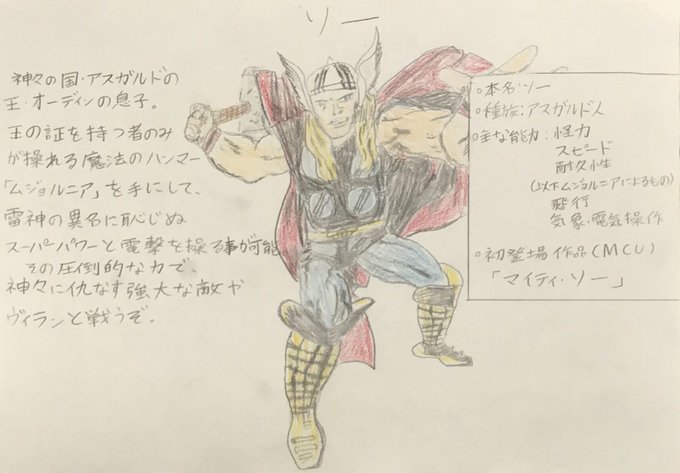 ソー
神々の国・アスガルドの
王・オーディンの息子。
王の証を持つ者のみ
が操れる魔法のハンマー
「ムジョルニア」を手にして、
雷神の異名に恥じぬ
スーパーパワーと電撃を操る事が可能
その圧倒的な力で、
神々に仇なす強大な敵や
ヴィランと戦うぞ。
○本名:ソー
○種族:アスガルド人
○主な能力:怪力
スピード
耐久性
(以下ムジョルニアによるもの)
飛行
気象・電気操作
○初登場作品(MCU)
「マイティ・ソー」